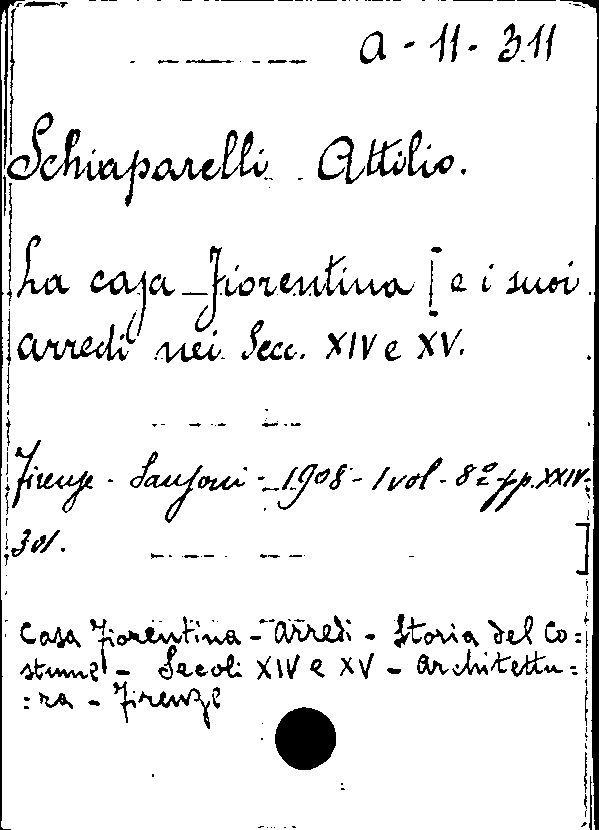 a - 11 - 311
Schiaparelli Attilio.
La casa Fiorentina [ e i suoi
arredi nei Secc. XIV e XV.
Firenze - Sansoni - 1908 - 1 vol - 8º pp. XXIV-
301. ]
Casa Fiorentina - Arredi - Storia del Co=
stume - Secoli XIV e XV - Architettu=
=ra - Firenze